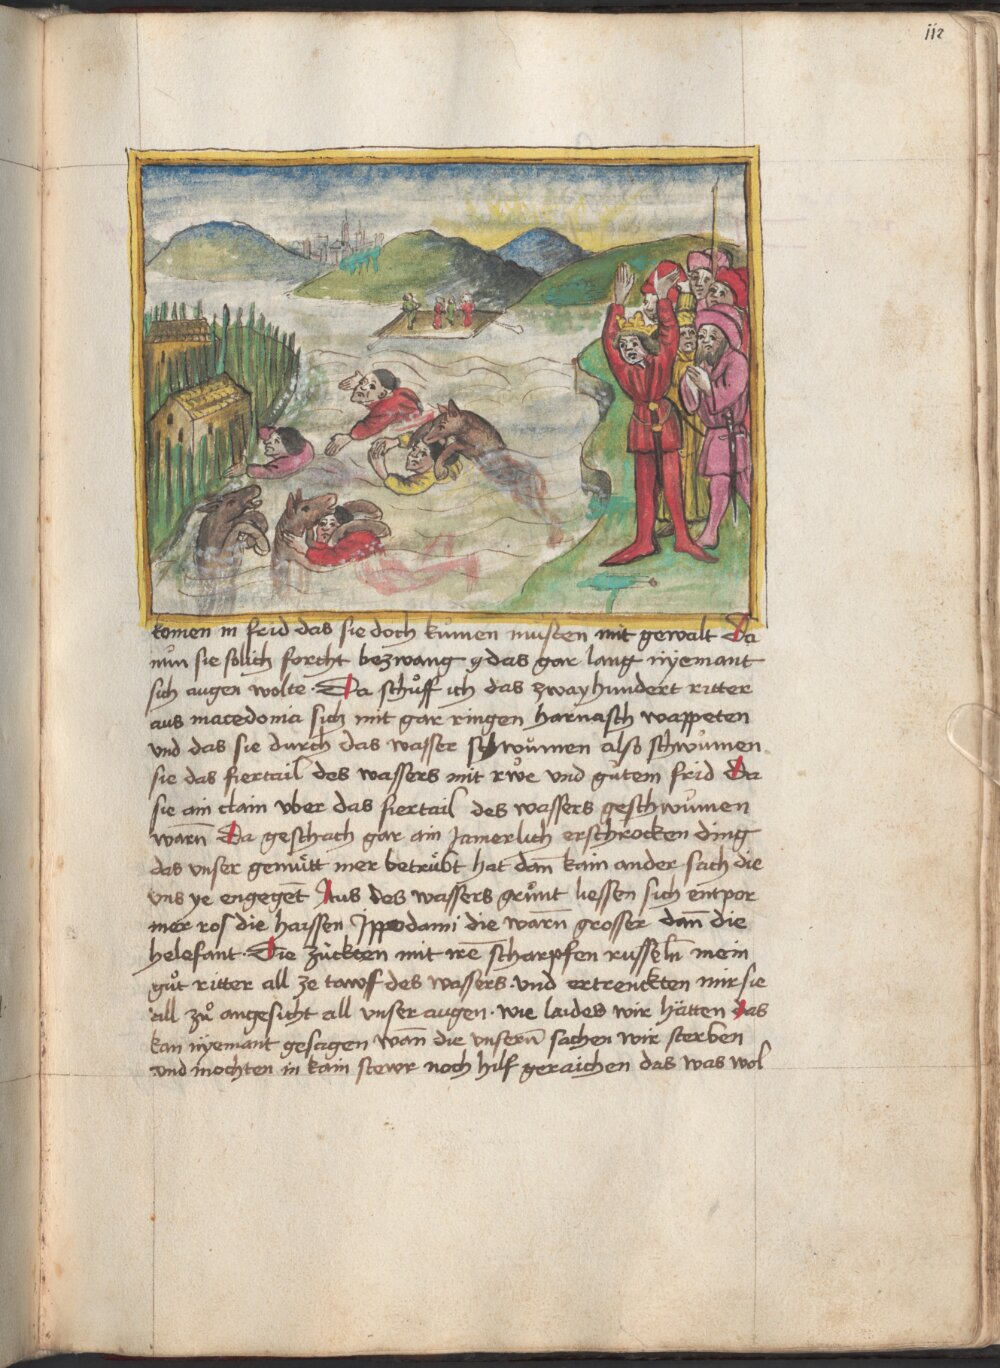 112
komen in frid das sie doch kůmen musten mit gewalt Da
nun sie sölich forcht bezwang das gar lang nyemant
sich augen wolte · Da schůff ich das zwayhundert ritter
aus macedonia sich mit gar ringen harnasch wappeten
vnd das sie durch das wasser schwümen also schwůmen
sie das fiertail des wassers mit rwe vnd gůtem frid Da
sie ain clain vber das fiertail des wassers geschwůmen
warn̄ Da geschach gar ain jamerlich erschrocken ding
das vnser gemůtt mer betrůbt hat dan̄ kain ander sach die
vns ye engeget̄ Aus des wassers grůnt liessen sich entpor
mer ros die haissen Jppodami die warn̄ grosser dan̄ die
helefant · Die zuckten mit ire scharpfen russeln̄ mein
gůt ritter all ze tawf des wassers · vnd ertrenckten mir sie
all zů angesicht all vnser augen · wie laides wir hätten das
kan nyemant gesagen wan̄ die vnsern̄ sachen wir sterben
vnd mochten in kain stewr noch hilf geraichen das was wol